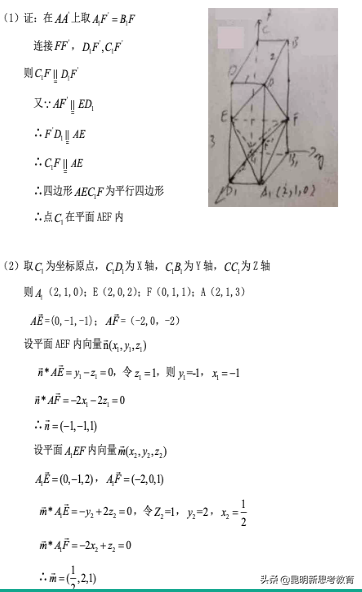 (1) 证：在AA'上取A₁F'=B₁F
连接FF'，D₁F',C₁F'
则C₁F∥D₁F'
又∵AF'∥ED₁
∴F'D₁∥AE
∴C₁F∥AE
∴四边形AEC₁F为平行四边形
∴点C₁在平面AEF内
C
B
2
D
E
F
3
B₁
y
D₁
A₁(2,1,0)
(2) 取C₁为坐标原点，C₁D₁为X轴，C₁B₁为Y轴，CC₁为Z轴
则A₁（2,1,0）；E（2,0,2）；F（0,1,1）；A（2,1,3）
AE=(0,-1,-1)；AF=（-2,0，-2）
设平面AEF内向量n(x₁,y₁,z₁)
n*AE=y₁-z₁=0，令z₁=1，则y₁=-1，x₁=-1
n*AF=-2x₁-2z₁=0
∴n=(-1,-1,1)
设平面A₁EF内向量m(x₂,y₂,z₂)
A₁E=(0,-1,2)，A₁F=(-2,0,1)
m*A₁E=-y₂+2z₂=0，令Z₂=1，y₂=2，x₂=1/2
m*A₁F=-2x₂+z₂=0
∴m=(1/2,2,1)
头条@昆明新思考教育